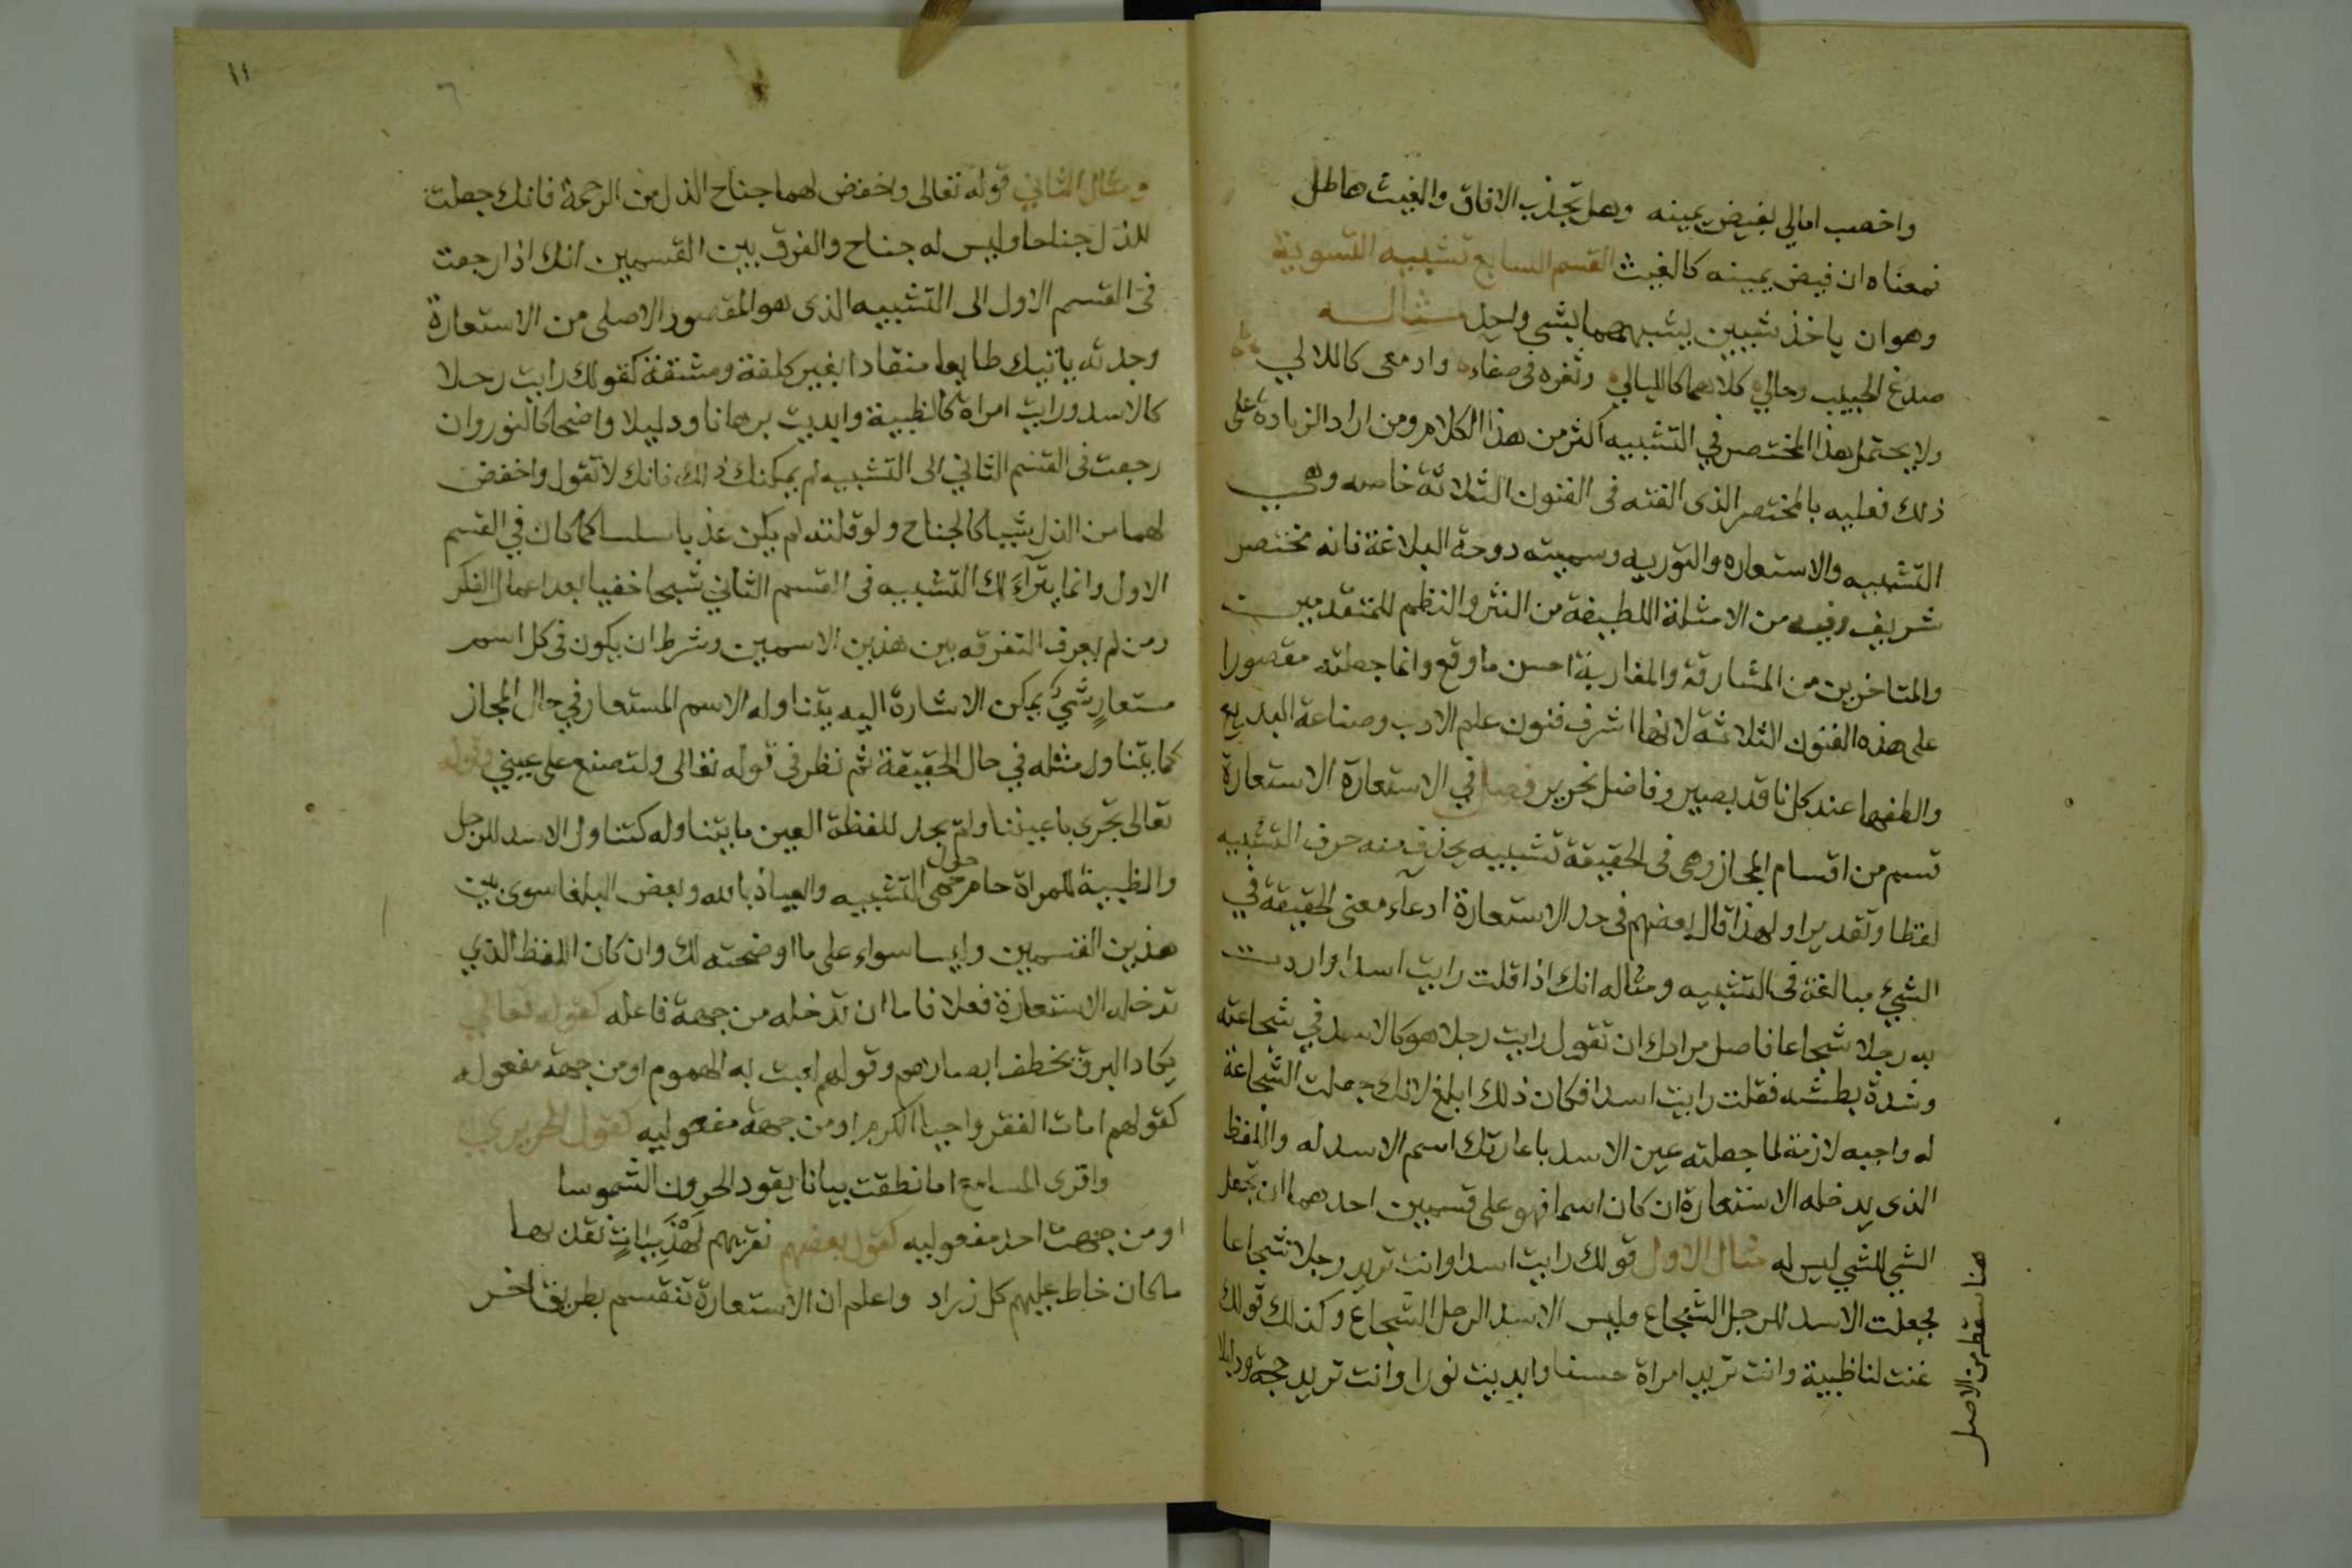 واخصب امالي بفيض يمينه وهل تجذب الافاق والغيث هاطل
فمعناه ان فيض يمينه كالغيث القسم السابع تشبيه التسوية
وهو ان ياخذ شيين يشبههما بشي واحد مثاله
صدغ الحبيب وحالي كلاهما كالليالي وثغره في صفاء وادمعى كاللالي
ولا يحتمل هذا المختصر في التشبيه اكثر من هذا الكلام ومن اراد الزيادة على
ذلك فعليه بالمختصر الذى الفته فى الفنون الثلاثة خاصه وهي
التشبيه والاستعاره والتوريه وسميته دوحة البلاغة فانه مختصر
شريف وفيه من الامثلة اللطيفة من النثر والنظم للمتقدمين
والمتاخرين من المشارقة والمغاربة احسن ما وقع وانما جعلته مقصورا
على هذه الفنون الثلاثة لانها اشرف فنون علم الادب وصناعة البديع
والطفها عند كل ناقد بصير وفاضل نحرير فصل في الاستعارة الاستعارة
قسم من اقسام المجاز وهى فى الحقيقة تشبيه يحذف منه حرف التشبيه
لفظا وتقديرا ولهذا قال بعضهم فى حد الاستعارة ادعاء معنى الحقيقة في
الشيء مبالغة فى التشبيه ومثاله انك اذا قلت رايت اسدا واردت
به رجلا شجاعا فاصل مرادك ان تقول رايت رجلا هو كالاسد في شجاعته
وشدة بطشه فقلت رايت اسدا فكان ذلك ابلغ لانك جعلت الشجاعة
له واجبه لازمة لما جعلته عين الاسد باعارتك اسم الاسد له واللفظ
الذى يدخله الاستعارة ان كان اسما فهو على قسمين احدهما ان تجعل
الشي للشي ليس له مثال الاول قولك رايت اسدا وانت تريد رجلا شجاعا
فجعلت الاسد للرجل الشجاع وليس الاسد الرجل الشجاع وكذلك قولك
عنت لنا ظبية وانت تريد امراة حسنا وابديت نورا وانت تريد حجة ودليلا
هنا سقط من الاصل
١١
ومثال الثاني قوله تعالى واخفض لهما جناح الذل من الرحمة فانك جعلت
للذل جناحا وليس له جناح والفرق بين القسمين انك اذا رجعت
فى القسم الاول الى التشبيه الذى هو المقصور الاصلى من الاستعارة
وجدته ياتيك طايعا منقادا بغير كلفة ومشقة كقولك رايت رجلا
كالاسد ورايت امراة كالظبية وابديت برهانا ودليلا واضحا كالنور وان
رجعت فى القسم الثاني الى التشبيه لم يمكنك ذلك فانك لا تقول واخفض
لهما من الذل شيا كالجناح ولو قلته لم يكن عذبا سلسا كما كان في القسم
الاول وانما يتراءَ لك التشبيه فى القسم الثاني شبحا خفيا بعد اعمال الفكر
ومن لم يعرف التفرقه بين هذين الاسمين وشرط ان يكون فى كل اسم
مستعارٍ شيءٌ يمكن الاشارة اليه يتناوله الاسم المستعار في حال المجاز
كما يتناول مثله في حال الحقيقة ثم نظر فى قوله تعالى ولتصنع على عيني وقوله
تعالى تجرى باعيننا ولم يجد للفظة العين ما يتناوله كتناول الاسد للرجل
والظبية للمراة حام حول حمى التشبيه والعياذ بالله وبعض البلغا سوى بين
هذين القسمين وليسا سواء على ما اوضحته لك وان كان اللفظ الذي
تدخله الاستعارة فعلا فاما ان تدخله من جهة فاعله كقوله تعالي
يكاد البرق يخطف ابصارهم وقولهم لعبت به الهموم او من جهة مفعوله
كقولهم امات الفقر واحيا الكرم او من جهة مفعوليه كقول الحريري
واقرى المسامع اما نطقت بيانا يقود الحرون الشموسا
او من جهت احد مفعوليه كقول بعضهم نقريهم لهذميات نقد بها
ما كان خاط عليهم كل زراد واعلم ان الاستعارة تنقسم بطريق اخر